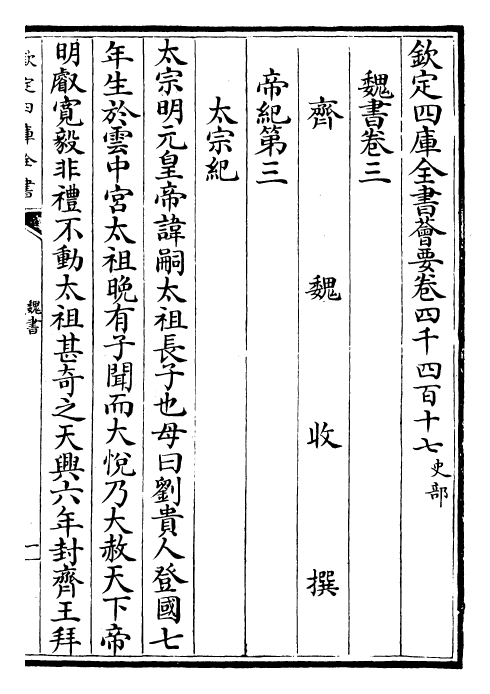 欽定四庫全書薈要卷四千四百十七史部
魏書卷三
齊魏收撰
帝紀第三
太宗紀
太宗明元皇帝諱嗣太祖長子也母曰劉貴人登國七
年生於雲中宮太祖晚有子聞而大悅乃大赦天下帝
明叡寬毅非禮不動太祖甚奇之天興六年封齊王拜
欽定四庫全書
魏書
一